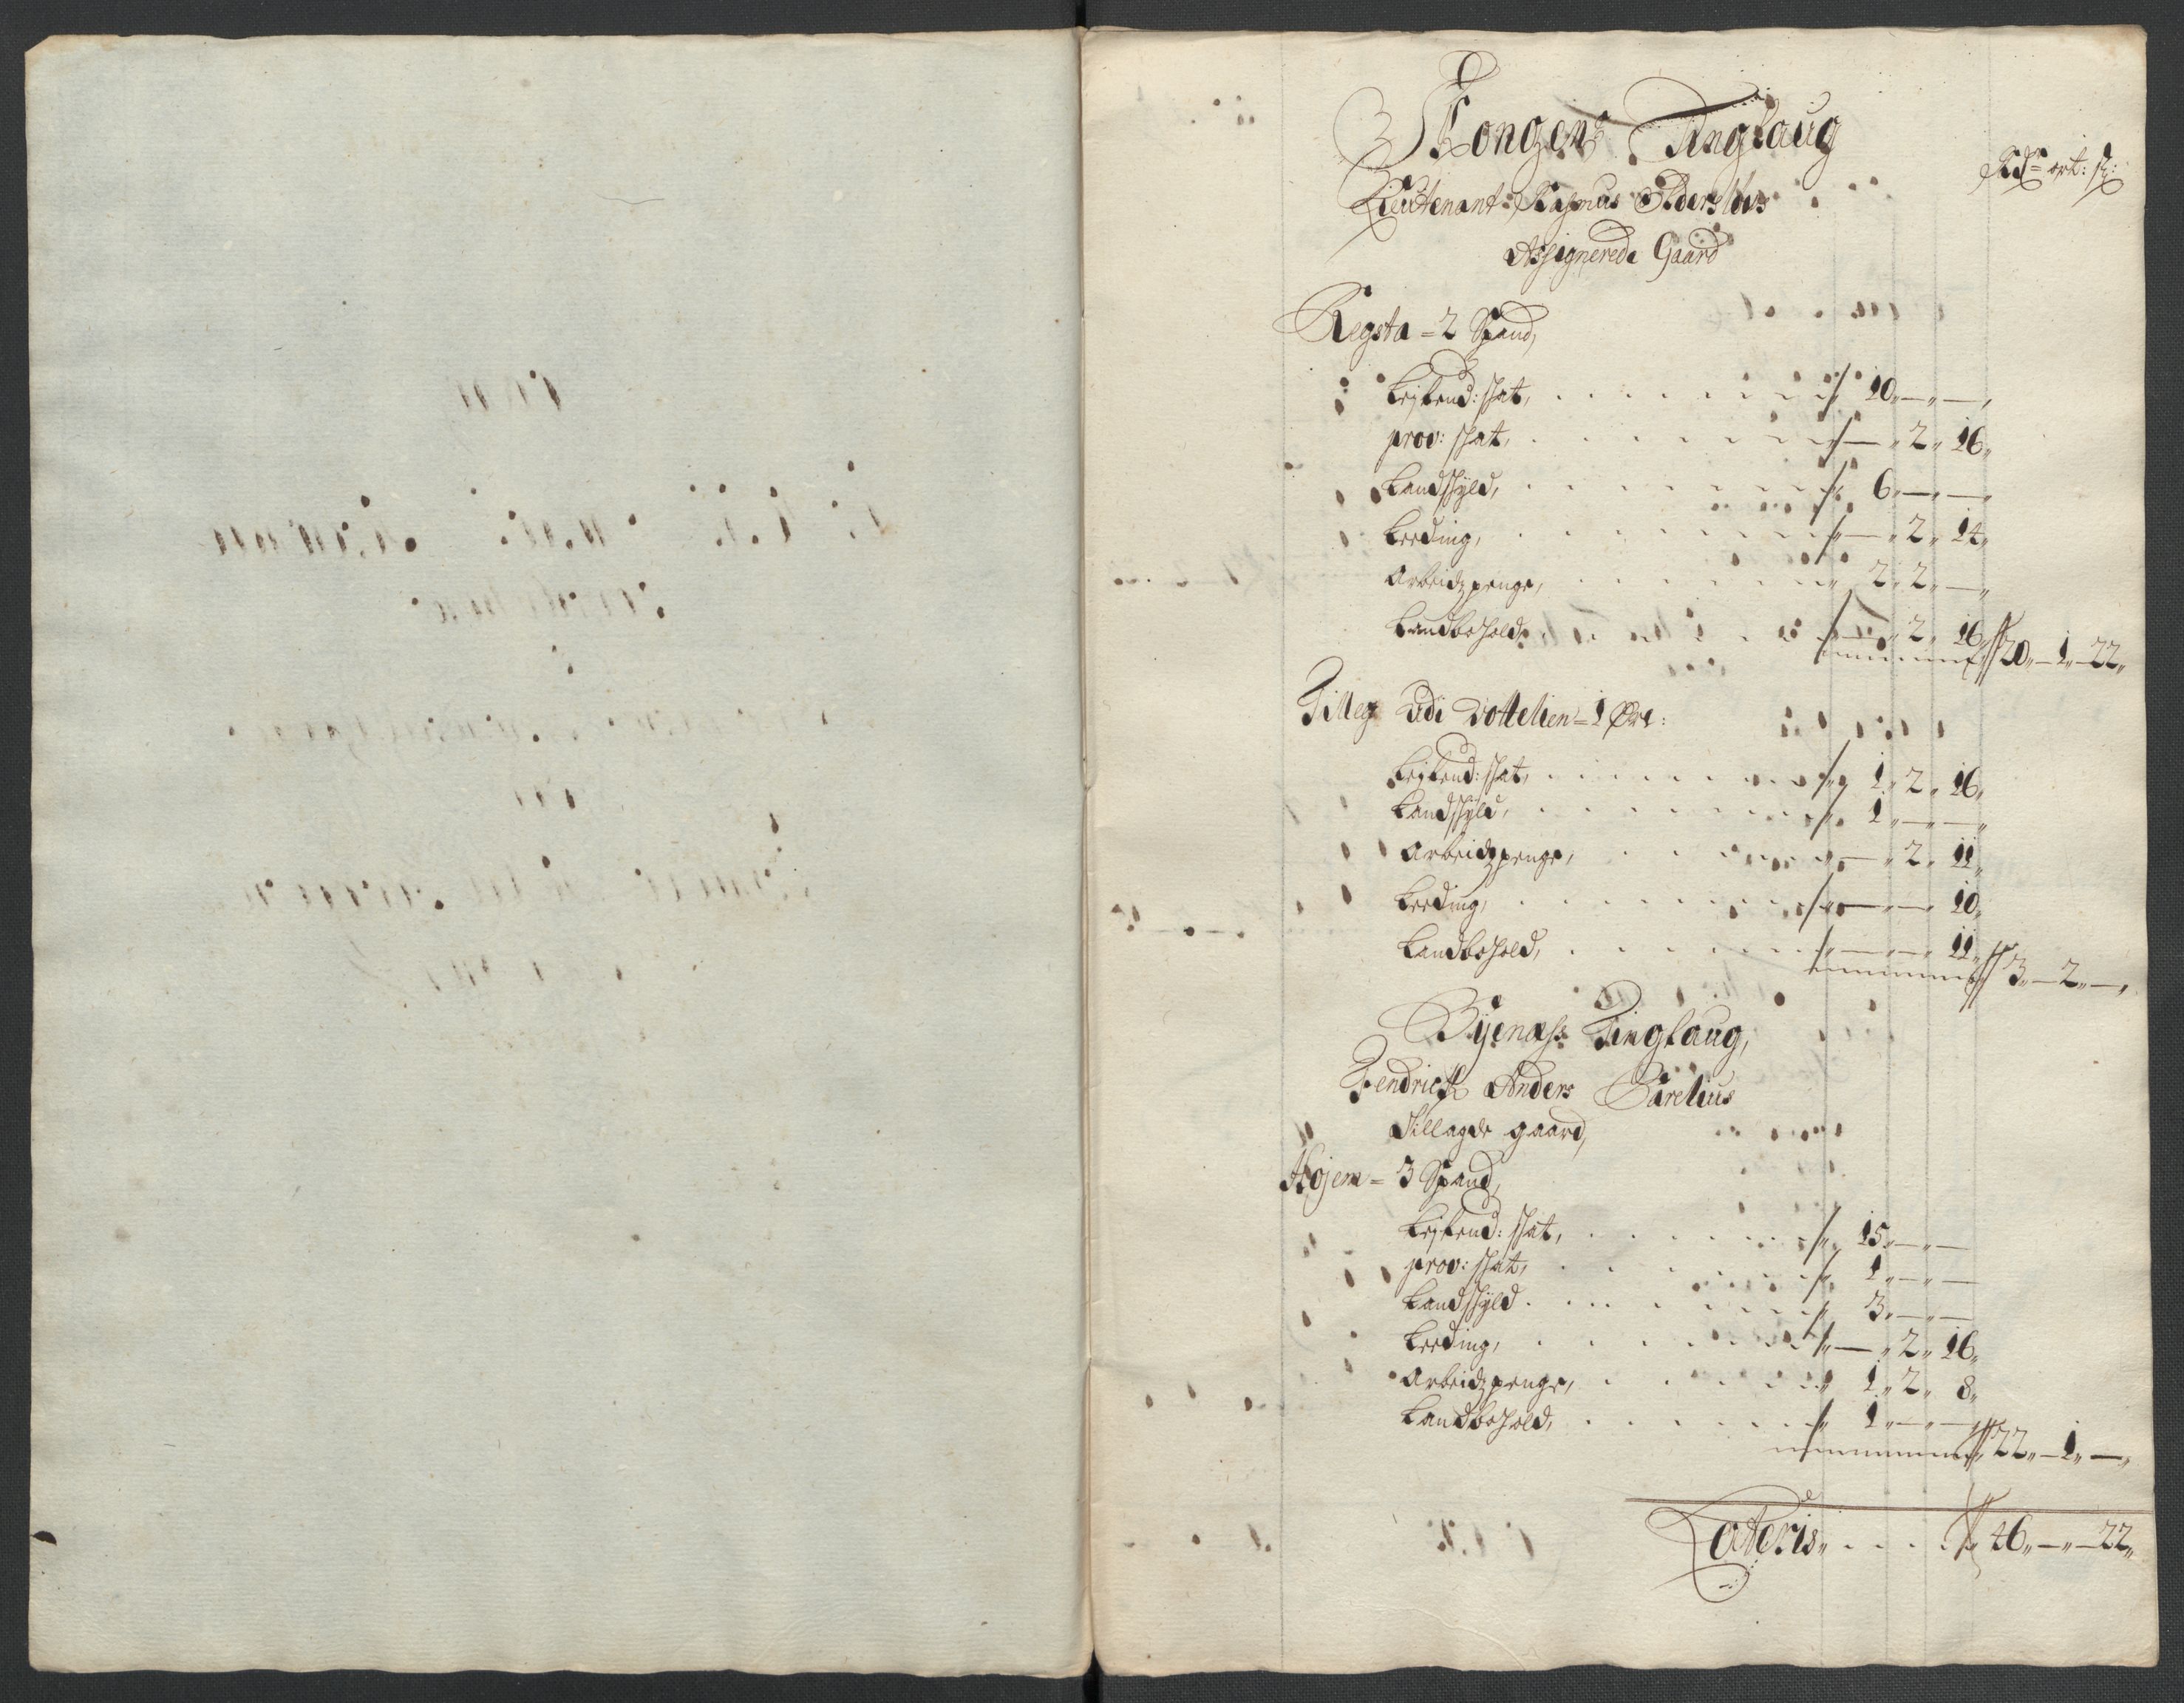 Stongens Tinglaug
Rdr ort: s:
Lieutenant Rasmus
Assignerede Gaard
Regsta = 2 Spand,
Leylend: skat, 10 " — " — "
prov: skat, — " 2 " 16 "
Landskyld, 6 " — " — "
Leeding, — " 2 " 14 "
Arbeidzpenge, 2 " 2 " — "
Landbohold, — " 2 " 16 " 20 " — 1 " — 22 "
Tilleg Udi = 1 Øre:
Leylend: skat, 1 " 2 " 16 "
Landskyld, 1 " — " — "
Arbeidzpenge, — " 2 " 11 "
Leeding, — " — " 10 "
Landbohold, — " — " 11 " 3 " — 2 " — "
Byenæss Tinglaug,
Fendrich Anders Parelius
Tillagde gaard,
Højem = 3 Spand,
Leylend: skat, 15 " — " —
prov: skat, 1 " — " —
Landskyld 3 " — " —
Leeding, — " 2 " 16 "
Arbeidzpenge, 1 " 2 " 8 "
Landbohold, 1 " — " — 22 " — 1 " — "
Lateris 46 " — " — 22 "